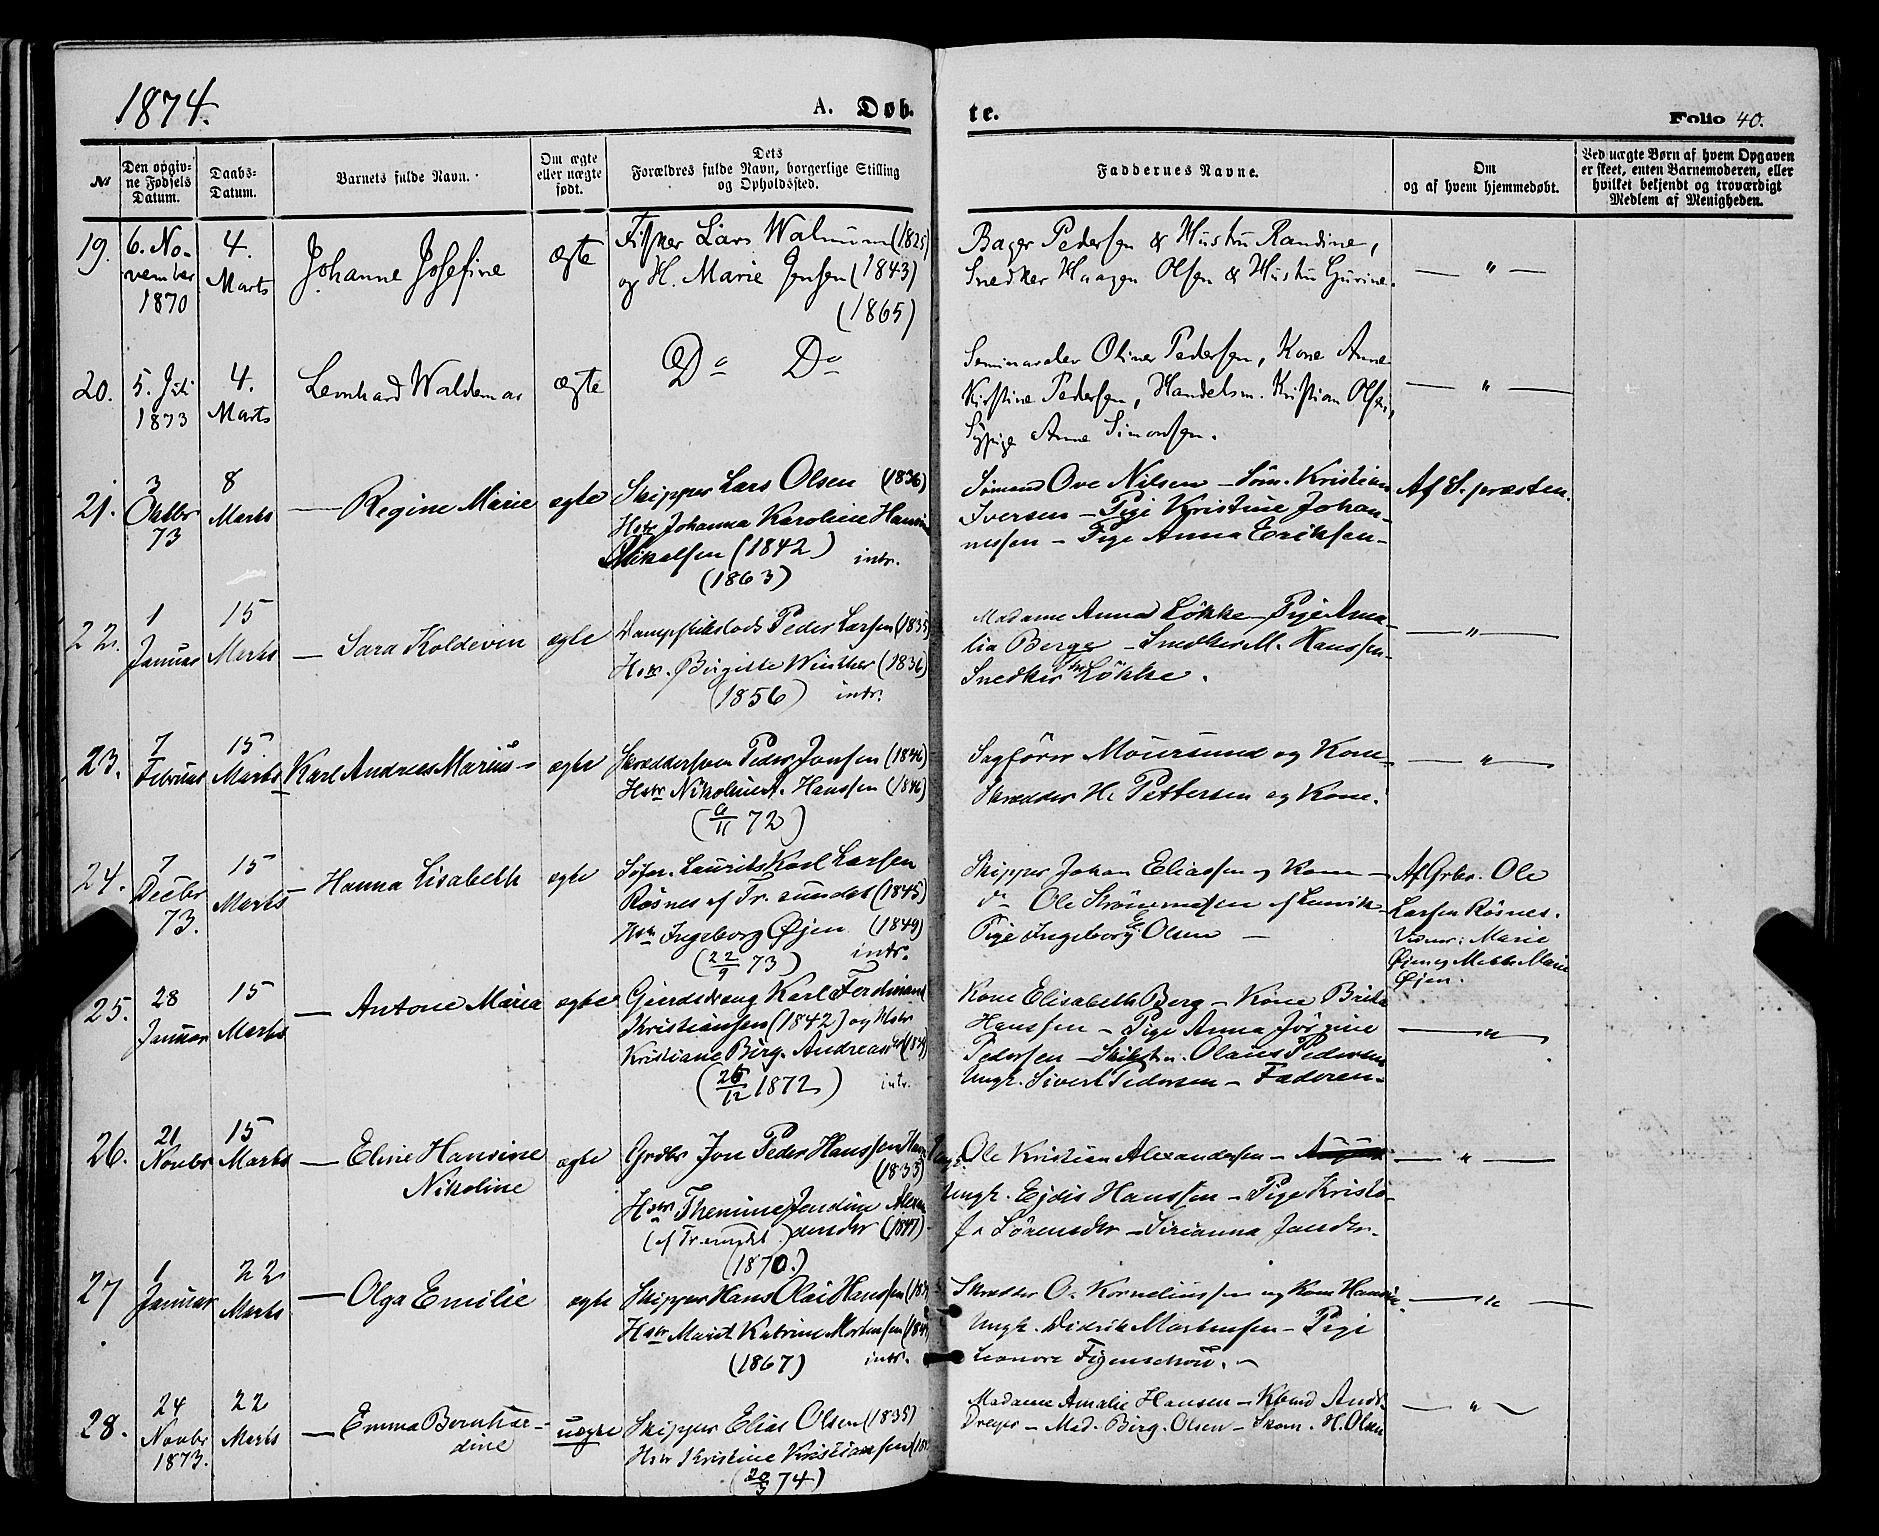 1874.
A. Døb-
te.
Folio 40.
№
Den opgiv-
ne Fødsels
Datum.
Daabs-
Datum.
Barnets fulde Navn.
Om ægte
eller uægte
født.
Dets
Forældres fulde Navn, borgerlige Stilling
og Opholdssted.
Faddernes Navne.
Om
og af hvem hjemmedøbt.
Ved uægte Børn af hvem Opgaven
er skeet, enten Barnemoderen, eller
hvilket bekjendt og troværdigt
Medlem af Menigheden.
19.
6. No-
vember
1870
4.
Marts
Johanne Josefine
ægte
Fisker Lars Walnum (1825)
og H. Marie Jensen (1843)
(1865)
Bager Pedersen & Hustru Randine,
Snedker Haagen Olsen & Hustru Gurine.
— " —
20.
5. Juli
1873
4.
Marts
Leonhard Waldemar
ægte
Do Do
Oliner Pedersen, Kone Anne
Kirstine Pedersen, Handelsm. Kristian Olsen,
Sypige Anne Simonsen.
— " —
21.
3
Oktbr
73
8
Marts
— Regine Marie
ægte
Skipper Lars Olsen (1836)
Hstr Johanna Karoline
Mikalsen (1842) intr.
(1863)
Sømand Ove Nilsen — Søm. Kristian
Iversen — Pige Kristine Johan-
nessen — Pige Anna Eriksen —
Af S. præsten.
22.
1
Januar
15
Marts
— Sara Koldevin
ægte
Peder Larsen (1835)
Hstr. Birgitte Winther (1836)
(1856) intr.
Madame Anna Løkke — Pige Ama-
lia Berge — Snedker M. Hanssen —
Snedker Løkke.
— " —
23.
7
Februar
15
Marts
Karl Andreas Marius —
ægte
Skræddersven Peder Jonsen (1846)
Hstr Nikoline A. Hanssen (1846)
(9/11 72)
Sagfører Moursund og Kone —
Skrædder H. Pettersen og Kone.
— " —
24.
7
Decbr
73.
15
Marts
— Hanna Lisabeth
ægte
Laurits Karl Larsen
Røsnes af Tr. sundet (1845)
Hstr Ingeborg Øjen (1849)
(22/9 73) intr.
Skipper Johan Eliassen og Kone —
do Ole
Pige Ingeborg E Olsen —
Af Grbr. Ole
Larsen Røsnes.
Vidner: Marie
Øjen og Mette Marie
Øjen.
25.
28
Januar
15
Marts
— Antone Maria
ægte
Gaardsdreng Karl Ferdinand
Kristiansen (1842) og Hstr
Kristiane Birg. Andreas
(26/12 1872) intr.
Kone Elisabeth Berg — Kone Brita
Hanssen — Pige Anna Jørgine
Pedersen — Olaus Pedersen
Ungk. Sivert Pedersen — Faderen.
— " —
26.
21
Novbr
15
Marts
— Eline Hansine
Nikoline
ægte
Grdbr Jon Peder Hanssen
(1833)
Hstr Themine Jendine Alexan
(af Tr. sundet) ander (1847)
(1870.)
Ole Kristian Alexandersen —
Ungk. Ejdis Hanssen — Pige Kristo-
fa Sørensdtr — Sirianna Jansdtr.
— " —
27
1
Januar
22
Marts
— Olga Emilie
ægte
Skipper Hans Olai Hansen
Hstr Marit Katrine Mortensen
(1867) intr.
Skrædder O. Korneliussen og Kone
Ungk. Didrik Martensen — Pige
Leonore Figenschou. —
— " —
28.
24
Novbr
1873.
22
Marts
— Emma Bernhar-
dine
uægte
Skipper Elias Olsen (1835)
Hstr Kristine Kristiansen
(20/3 74)
Madame Amalie Hansen — Kbmd
Dreyer — Mad. Birg. Olsen — Skom. H. Olsen
— " —